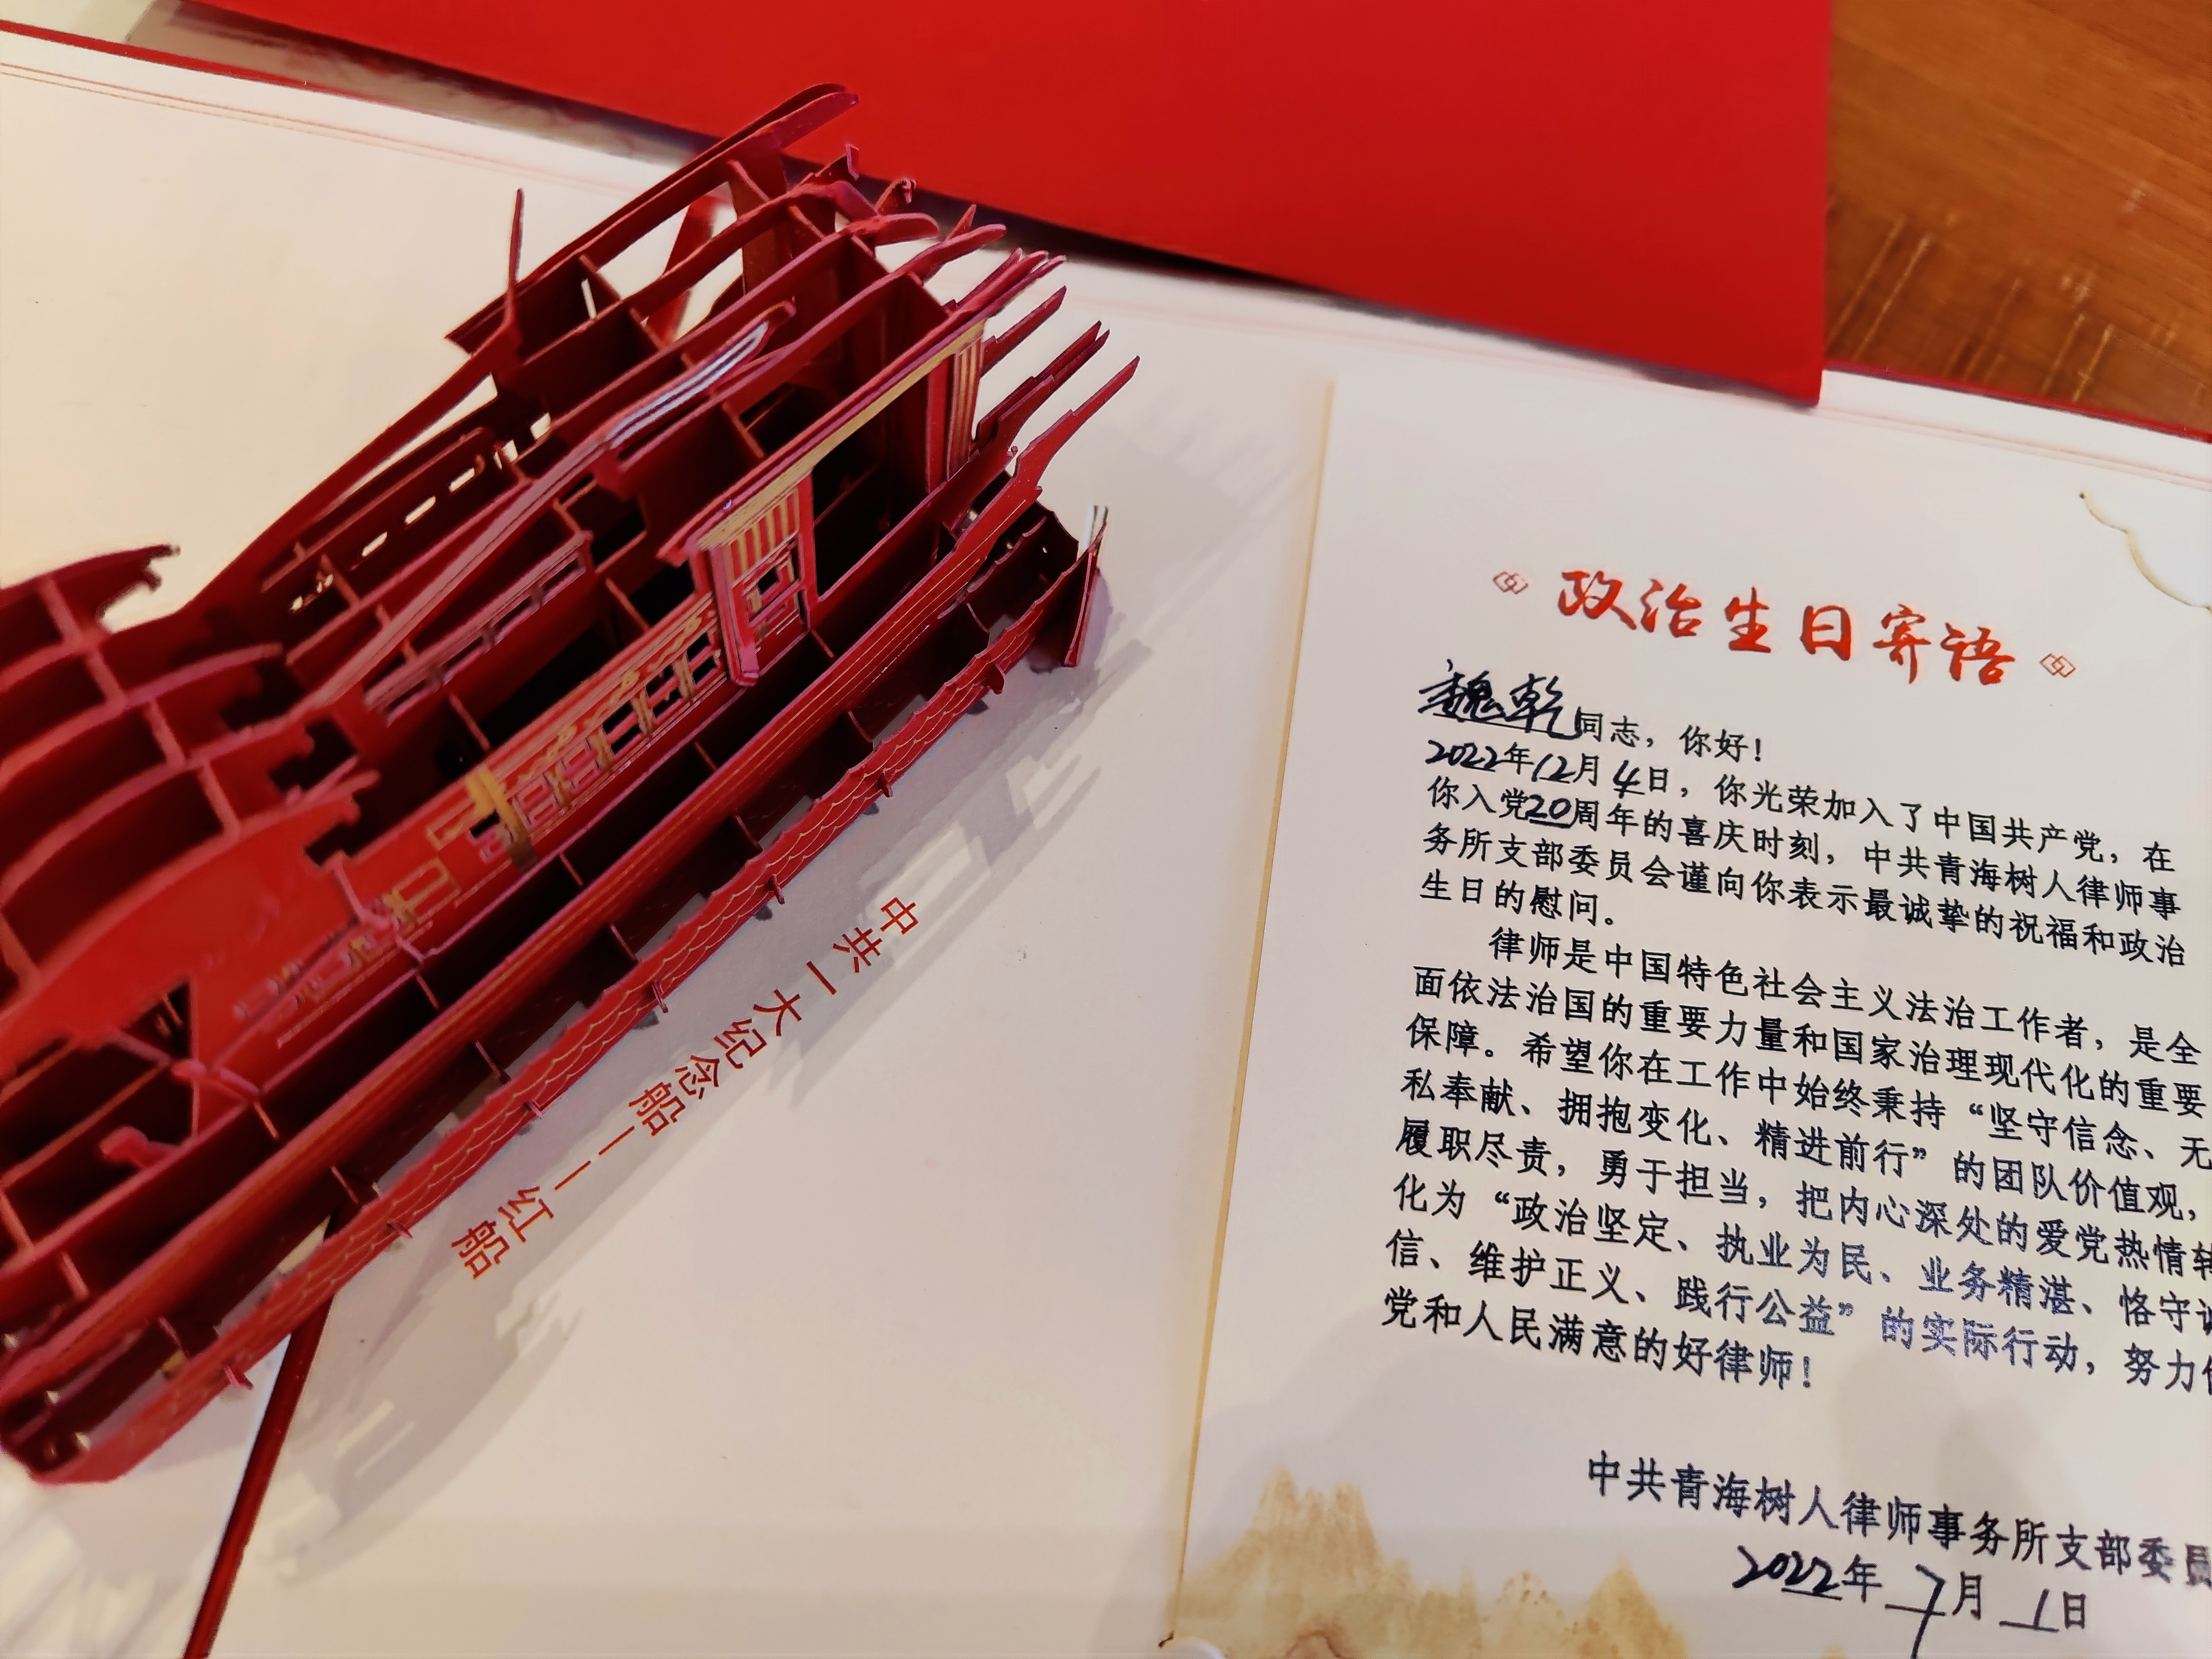 中共一大纪念船——红船
政治生日寄语
魏乾同志，你好！
2022年12月4日，你光荣加入了中国共产党，在
你入党20周年的喜庆时刻，中共青海树人律师事
务所支部委员会谨向你表示最诚挚的祝福和政治
生日的慰问。
律师是中国特色社会主义法治工作者，是全
面依法治国的重要力量和国家治理现代化的重要
保障。希望你在工作中始终秉持“坚守信念、无
私奉献、拥抱变化、精进前行”的团队价值观，
履职尽责，勇于担当，把内心深处的爱党热情转
化为“政治坚定、执业为民、业务精湛、恪守诚
信、维护正义、践行公益”的实际行动，努力
党和人民满意的好律师！
中共青海树人律师事务所支部委员
2022年7月1日